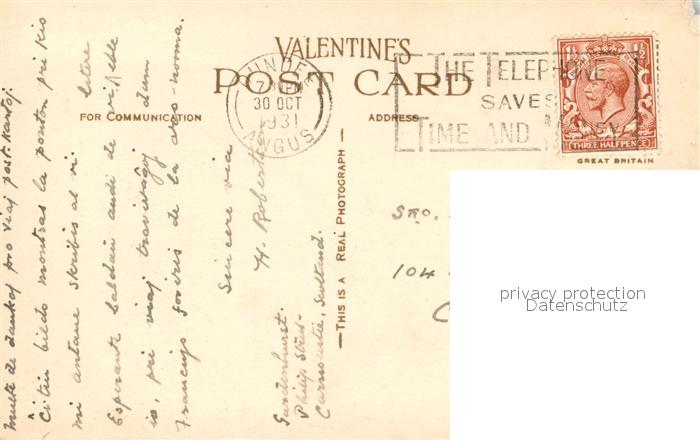 VALENTINE'S
POST CARD
FOR COMMUNICATION
ADDRESS
DUNDEE
30 OCT
1931
ANGUS
THE TELEPHONE
SAVES
TIME AND
THREE HALFPENCE
GREAT BRITAIN
THIS IS A REAL PHOTOGRAPH
Multe da dankoj pro viaj post-kartoj.
Ĉi tiu bildo montras la ponton pri kio
mi antaŭe skribis al vi letere
Esperante baldaŭ aŭdi de vi
pri viaj dum
de la
Sincere via
H. Robertson
Gardenhurst.
Philip Street
Carnoustie, Scotland.
Sro.
104
privacy protection
Datenschutz